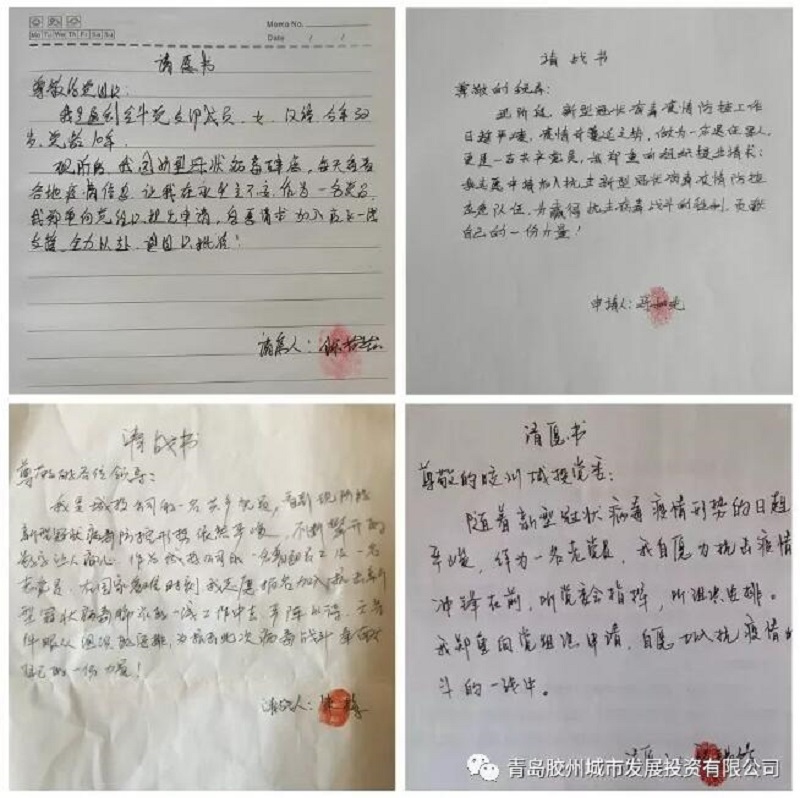 Memo No.
Mo Tu We Th Fr Sa Su
Date / /
请愿书
尊敬的党组织:
我是通利金牛党支部党员,女,汉语,今年
岁,党龄10年。
现阶段,我国新型冠状病毒肆虐,每天看着
各地疫情信息,让我
作为一名党员,
我郑重向党组织提出申请,自愿请求加入
全力以赴,望组织批准!
请愿人:
请战书
尊敬的组织:
现阶段,新型冠状病毒疫情防控工作
日趋严峻,疫情有蔓延之势,做为一名退伍军人,
更是一名共产党员,我郑重向组织提出请求:
我志愿申请加入抗击新型冠状病毒疫情防控
队伍,为赢得抗击病毒战斗的胜利,贡献
自己的一份力量!
申请人:
请战书
尊敬的各位领导:
我是城投公司的一名共产党员,
现阶段
新型冠状病毒防控形势依然严峻,不断攀升的
数字让人痛心。作为城投公司的一名
员工及一名
老党员,在国家危难时刻我志愿报名加入抗击新
型冠状病毒肺炎的一线工作中去,
件服从组织的安排,为抗击此次病毒战斗奉献
自己的一份力量!
请战人:
请愿书
尊敬的胶州城投党委:
随着新型冠状病毒疫情形势的日趋
严峻,作为一名老党员,我自愿为抗击疫情
冲锋在前,听党委会指挥,听组织安排。
我郑重向党组织申请,自愿加入抗疫情战
斗的一线中。
请愿人:
青岛胶州城市发展投资有限公司